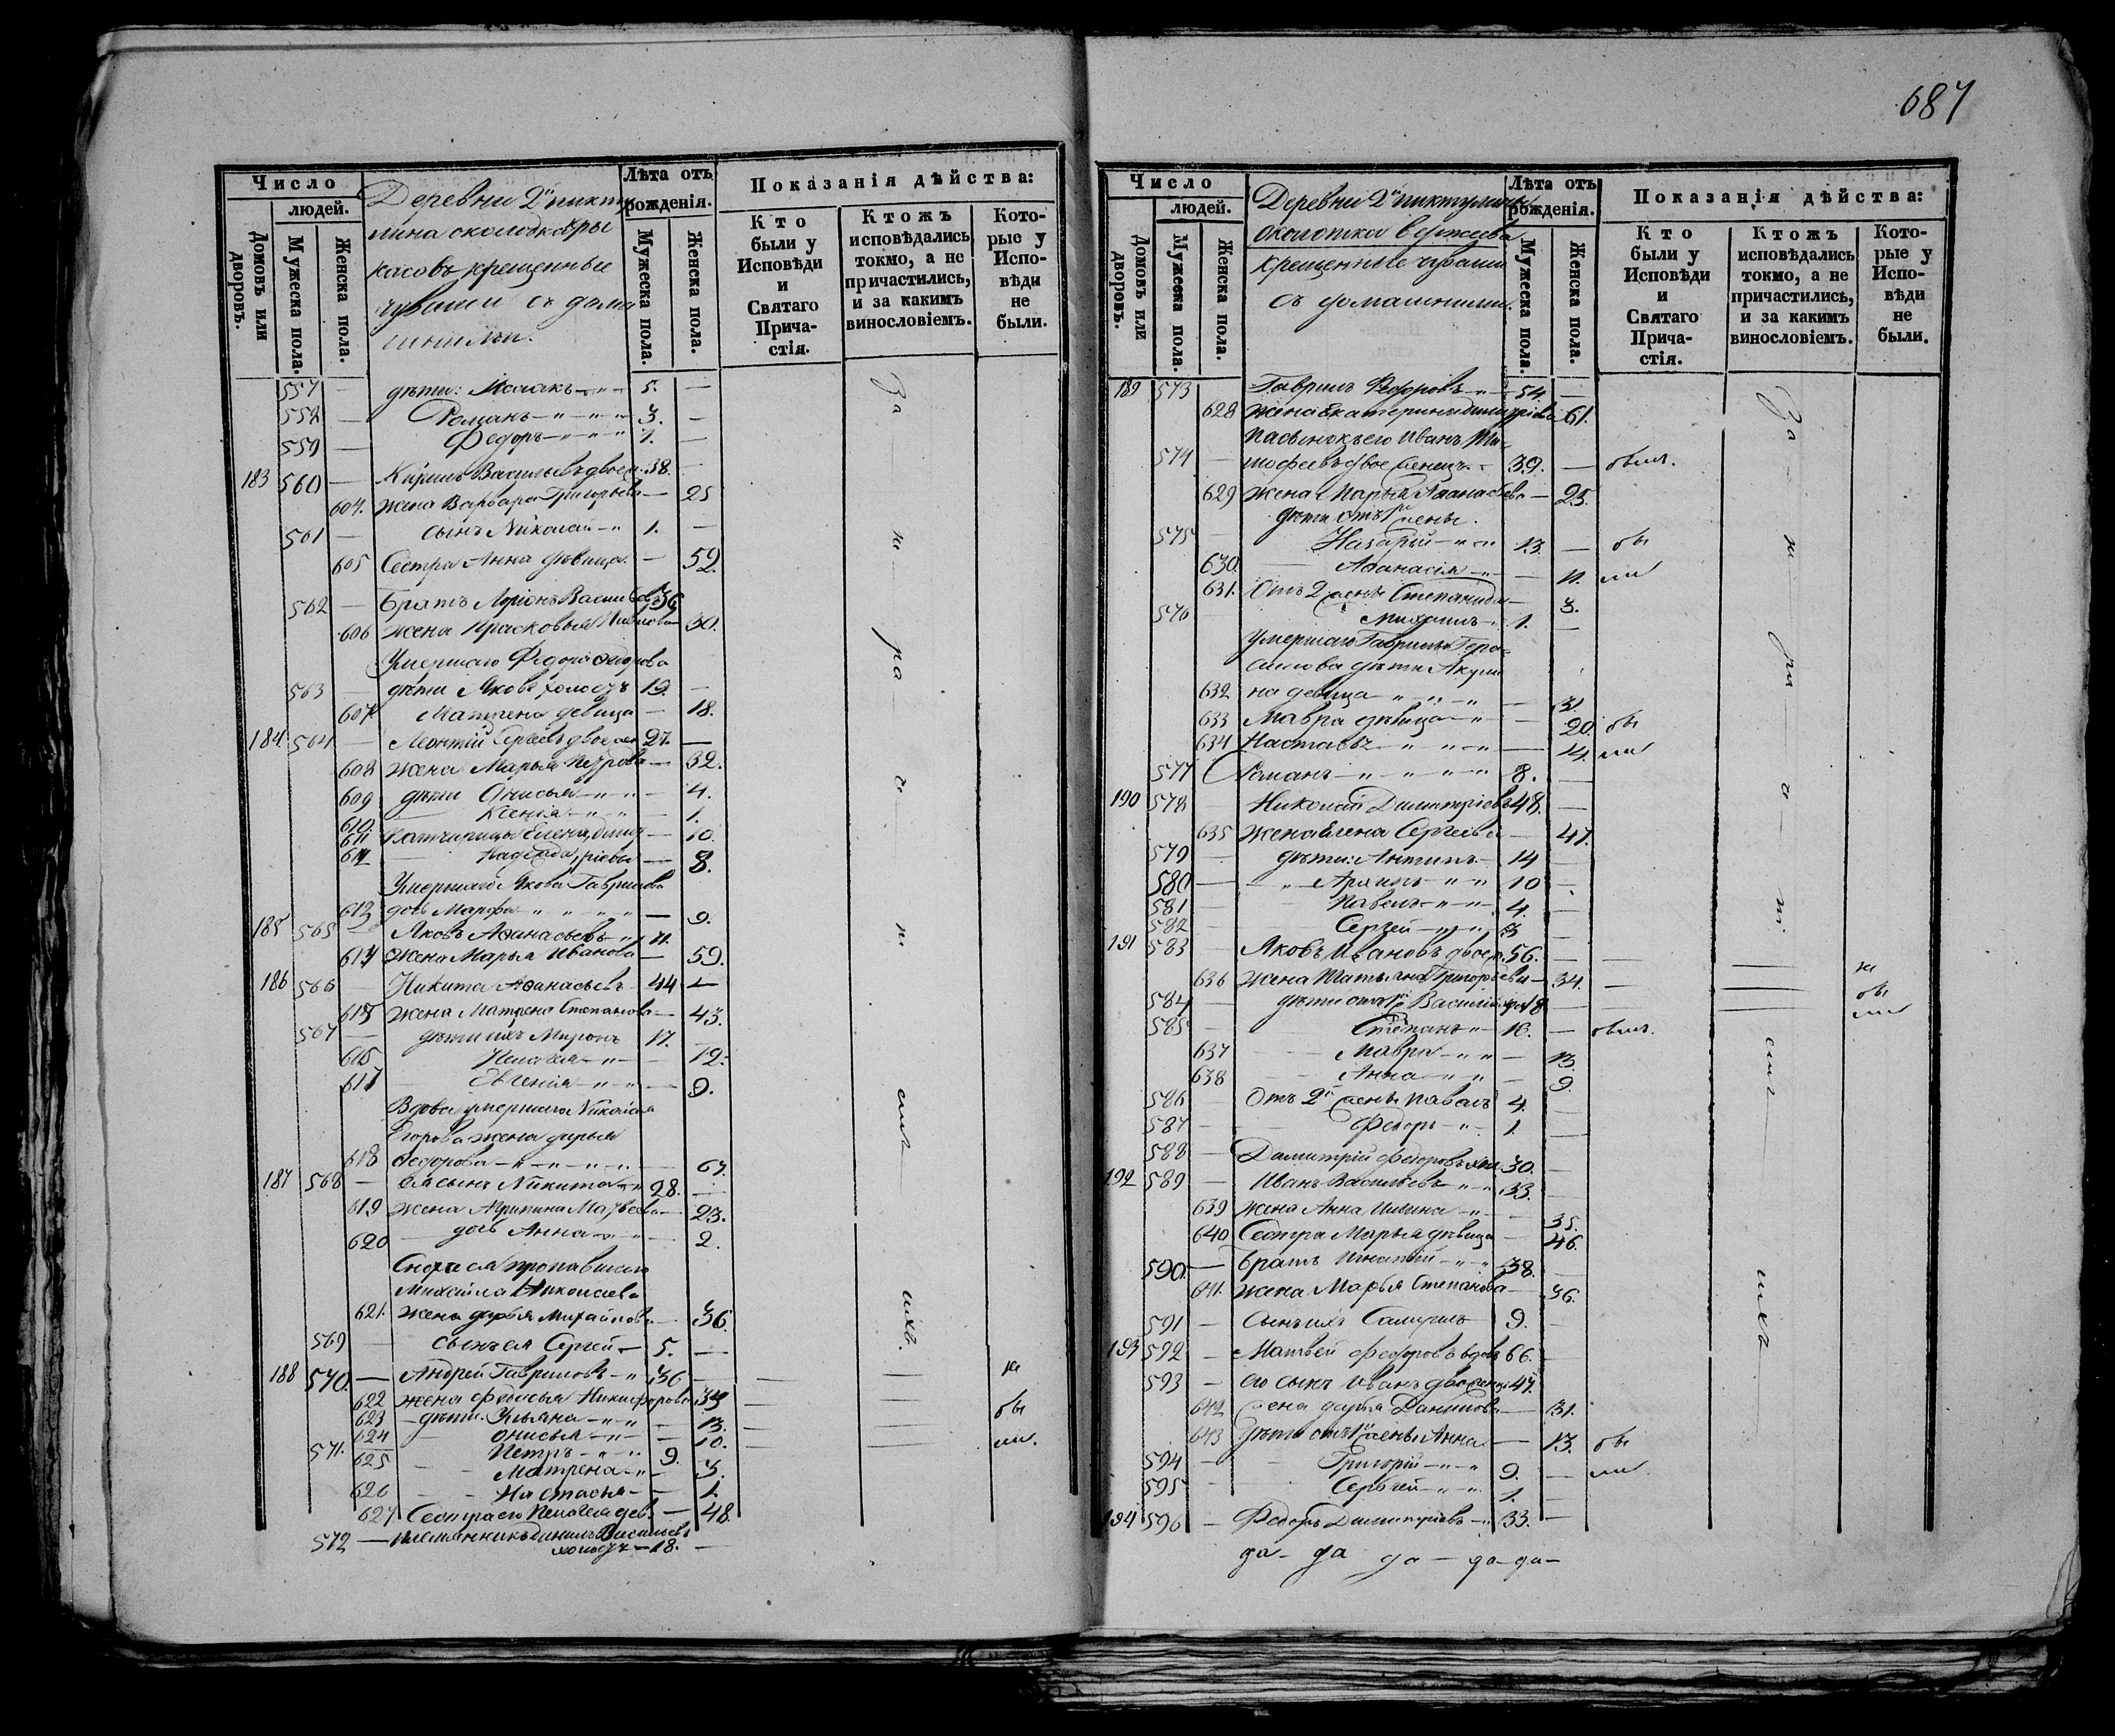 687
Число
людей.
Домовъ или дворовъ.
Мужеска пола.
Женска пола.
Деревни 2й пикту
лина околодка
касовъ крещенные
чуваши съ дома
шними.
Лѣта отъ рожденія.
Мужеска пола.
Женска пола.
Показанія дѣйства:
Кто были у Исповѣди и Святаго Причастія.
Ктожъ исповѣдались токмо, а не причастились, и за какимъ винословіемъ.
Которые у Исповѣди не были.
557 — дѣти: Исаакъ 5. —
558 — Романъ 3. —
559 — Федоръ 1. —
183 560 — Кирилъ Васильевъ двоеж. 38. —
604. жена Варвара Григорьева — 25
561 — сынъ Николай 1. —
605 Сестра Анна дѣвица — 59.
562 — Братъ Васильевъ 36
606 жена Прасковья — 30.
Умершаго Федора
563 — дѣти Яковъ холостъ 19. —
607. Матрена девица — 18.
184. 564 — Леонтій Сергѣевъ двоежен 27. —
608 жена Марья Петрова — 32.
609 дѣти Анисья — 4.
610. Ксенія — 1.
611 Елена — 10.
Надежда — 8.
Умершаго Якова Гаврилова
613 дочь Марфа — 9.
185 565 Яковъ Аѳанасьевъ
614 жена Марья Иванова — 59.
186 566 — Никита Аѳанасьевъ 44 —
615 жена Матрена Степанова — 43.
567 — дѣти ихъ Миронъ 17.
Пелагея — 12.
617 Евгенія — 9.
Вдова умершаго Николая
Егорова жена дарья
618 Федорова — 67.
187 568 — ея сынъ Никита 28. —
619 жена Агрипина — 23.
620 — дочь Анна — 2.
Сноха ея пропавшаго
Михайла Николаева
621. жена дарья Михайлова — 36.
569 — сынъ ея Сергей 5. —
188 570. — Андрей Гавриловъ 36 — не
622 жена Федосья Никифорова 34 — бы
623 — дѣти. Ульяна — 13. — ли.
624 Онисья — 10.
571. Петръ 9.
625 Матрена — 3.
626 Настасья — 1.
627 Сестра его Пелагея дев. — 48.
572 — племянникъ Данилъ Васильевъ
холостъ — 18. —
За — не — ра — с — ні — емъ ихъ.
Число
людей.
Домовъ или дворовъ.
Мужеска пола.
Женска пола.
Деревни 2й пиктулины
околотка
крещенные чуваши
съ домашними.
Лѣта отъ рожденія.
Мужеска пола.
Женска пола.
Показанія дѣйства:
Кто были у Исповѣди и Святаго Причастія.
Ктожъ исповѣдались токмо, а не причастились, и за какимъ винословіемъ.
Которые у Исповѣди не были.
189 573 Гаврилъ Федоровъ 54. —
628 жена Екатерина димитріева 61.
Пасынокъ его Иванъ Ти-
574 — мофеевъ двоеженецъ 39. — былъ.
629 жена Марья Аѳанасьева — 25.
дѣти отъ 1й жены.
575 — Назарій 13. — бы
630. — Аѳанасія — 11. ли
631. Отъ 2й жены Степанида — 3.
576 Михаилъ 1. —
умершаго Гаврилы Гера-
симова дѣти Акули
632 на девица — 31.
633 Мавра дѣвица — 20. бы
634 Настасья — 14. ли
577 Романъ 8. —
190 578 Николай Димитріевъ 48. —
635 жена Елена Сергеева — 47.
579 — дѣти: Антипъ 14 —
580 — Архипъ 10 —
581 — Павелъ 4. —
582 — Сергей 3 —
191 583 — Яковъ Ивановъ двоеж. 56. — не
636 жена Татьяна Григорьева — 34. — бы
584 — дѣти отъ 1й Василій 18 — ли
585 — Степанъ 16. — былъ.
637 Мавра — 13.
638 Анна — 9.
586 — Отъ 2й жены павелъ 4. —
587 — Федоръ 1. —
588 — Димитрій Федоровъ 30. —
192 589 — Иванъ Васильевъ 33. —
639 жена Анна — 35.
640 Сестра Марья дѣвица — 46.
590. — братъ Игнатій 38. —
641. жена Марья Степанова — 36.
591 — Сынъ ихъ Самуилъ 9. —
193 592 — Матвей Федоровъ вдовъ 66. —
593 — его сынъ Иванъ двоеженец 47.
642 жена дарья Данилова — 31.
643 дѣти отъ 1й жены Анна — 13. бы
594 — Григорій 9. — ли
595 — Сергѣй 1. —
194 596 — Федоръ Димитріевъ 33. —
За — не — ра — с — ні — емъ — ихъ
да — да да — да — да —